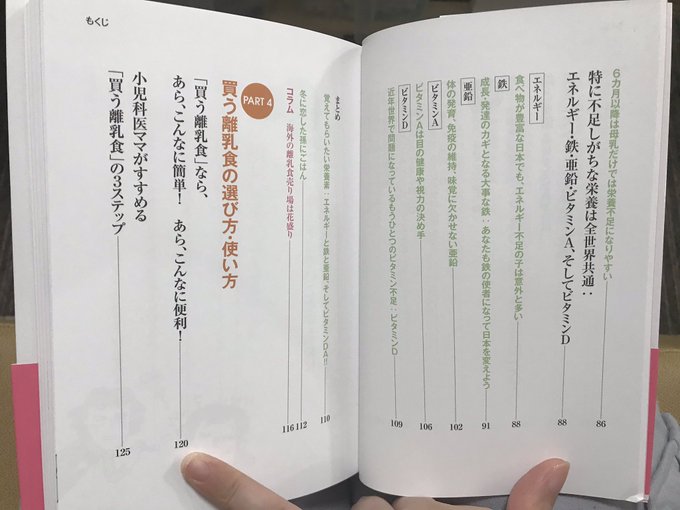 6カ月以降は母乳だけでは栄養不足になりやすい
86
特に不足しがちな栄養は全世界共通：
エネルギー・鉄・亜鉛・ビタミンA、そしてビタミンD
88
エネルギー
食べ物が豊富な日本でも、エネルギー不足の子は意外と多い
88
鉄
成長・発達のカギとなる大事な鉄：あなたも鉄の使者になって日本を変えよう
91
亜鉛
体の発育、免疫の維持、味覚に欠かせない亜鉛
102
ビタミンA
ビタミンAは目の健康や視力の決め手
106
ビタミンD
近年世界で問題になっているもうひとつのビタミン不足：ビタミンD
109
もくじ
まとめ
覚えてもらいたい栄養素：エネルギーと鉄と亜鉛、そしてビタミンDA!!
110
冬に恋した孫にごはん
112
コラム 海外の離乳食売り場は花盛り
116
PART 4
買う離乳食の選び方・使い方
「買う離乳食」なら、
あら、こんなに簡単！ あら、こんなに便利！
120
小児科医ママがすすめる
「買う離乳食」の3ステップ
125